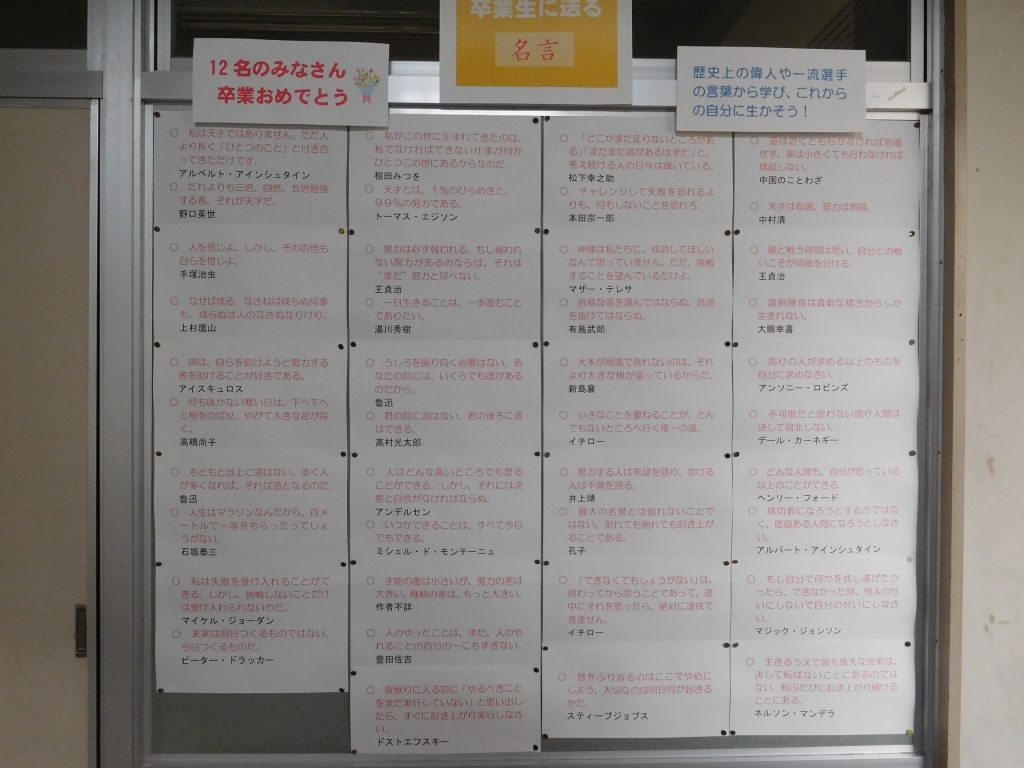 卒業生に送る
名言
12名のみなさん
卒業おめでとう
歴史上の偉人や一流選手
の言葉から学び、これから
の自分に生かそう！
○ 私は天才ではありません。ただ人
より長く「ひとつのこと」と付き合
ってきただけです。
アルベルト・アインシュタイン
○ だれよりも三倍、四倍、五倍勉強
する者。それが天才だ。
野口英世
○ 人を信じよ、しかし、その百倍も
自らを信じよ。
手塚治虫
○ なせば成る。なさねば成らぬ何事
も。成らぬは人のなさぬなりけり。
上杉鷹山
○ 神は、自らを助けようと努力する
者を助けることが好きである。
アイスキュロス
○ 何も咲かない寒い日は、下へ下へ
と根をのばせ。やがて大きな花が咲
く。
高橋尚子
○ もともと地上に道はない。歩く人
が多くなれば、それば道となるのだ。
魯迅
○ 人生はマラソンなんだから、百メ
ートルで一等をもらったってしょ
うがない。
石坂泰三
○ 私は失敗を受け入れることがで
きる。しかし、挑戦しないことだけ
は受け入れられないのだ。
マイケル・ジョーダン
○ 未来は明日つくるものではない。
今日つくるものだ。
ピーター・ドラッカー
○ 私がこの世に生まれてきたのは、
私でなければできない仕事が何か
ひとつこの世にあるからなのだ。
相田みつを
○ 天才とは、1％のひらめきと、
99％の努力である。
トーマス・エジソン
○ 努力は必ず報われる。もし報われ
ない努力があるのならば、それは
“まだ”努力と呼べない。
王貞治
○ 一日生きることは、一歩進むこと
でありたい。
湯川秀樹
○ うしろを振り向く必要はない。あ
なたの前には、いくらでも道がある
のだから。
魯迅
○ 君の前に道はない。君の後ろに道
はできる。
高村光太郎
○ 人はどんな高いところでも登る
ことができる。しかし、それには決
意と自信がなければならぬ。
アンデルセン
○ いつかできることは、すべて今日
でもできる。
ミシェル・ド・モンテーニュ
○ 才能の差は小さいが、努力の差は
大きい。継続の差は、もっと大きい。
作者不詳
○ 人のやったことは、まだ、人のや
れることの百分の一にもすぎない。
豊田佐吉
○ 夜眠りに入る前に「やるべきこと
をまだ実行していない」と思い出し
たら、すぐに起き上がり実行しなさ
い。
ドストエフスキー
○ 「どこかまだ足りないところがあ
る」「まだまだ道があるはずだ」と、
考え続ける人の日々は輝いている。
松下幸之助
○ チャレンジして失敗を恐れるよ
りも、何もしないことを恐れろ。
本田宗一郎
○ 神様は私たちに、成功してほしい
なんて思っていません。ただ、挑戦
することを望んでいるだけよ。
マザー・テレサ
○ 容易な道を選んではならぬ。近道
を抜けてはならぬ。
有島武郎
○ 大木が雨風で倒れないのは、それ
より大きな根が張っているからだ。
新島襄
○ 小さなことを重ねることが、とん
でもないところへ行く唯一の道。
イチロー
○ 努力する人は希望を語り、怠ける
人は不満を語る。
井上靖
○ 最大の名誉とは倒れないことで
はない。倒れても倒れても起き上が
ることである。
孔子
○ 「できなくてもしょうがない」は、
終わってから思うことであって、途
中にそれを思ったら、絶対に達成で
きません。
イチロー
○ 昔をふり返るのはここでやめに
しよう。大切なのは明日何が起きる
かだ。
スティーブジョブス
○ 道は近くとも行かなければ到達
せず、事は小さくても行わなければ
成就しない。
中国のことわざ
○ 天才は有限。努力は無限。
中村清
○ 敵と戦う時間は短い。自分との戦
いこそが明暗を分ける。
王貞治
○ 真剣勝負は真剣な稽古からしか
生まれない。
大鵬幸喜
○ 周りの人が求める以上のものを
自分に求めなさい。
アンソニー・ロビンズ
○ 不可能だと思わない限り人間は
決して敗北しない。
デール・カーネギー
○ どんな人間も、自分が思っている
以上のことができる。
ヘンリー・フォード
○ 成功者になろうとするのではな
く、価値ある人間になろうとしなさ
い。
アルバート・アインシュタイン
○ もし自分で何かを成し遂げたか
ったら、できなかった時、他人のせ
いにしないで自分のせいにしなさ
い。
マジック・ジョンソン
○ 生きるうえで最も偉大な光栄は、
決して転ばないことにあるのでは
ない。転ぶたびに起き上がり続ける
ことにある。
ネルソン・マンデラ